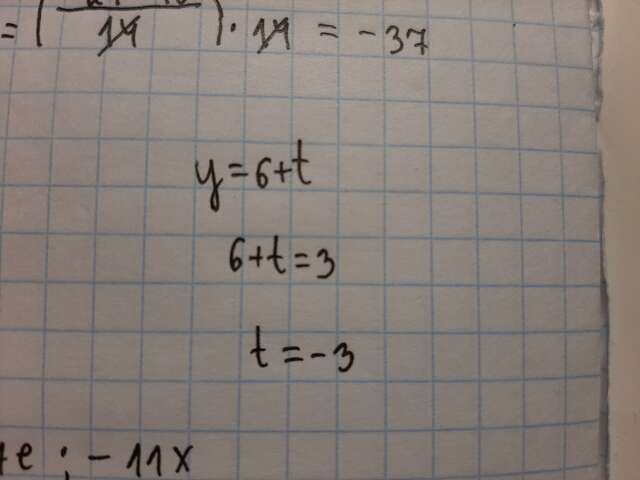 = ( / 14 ) · 14 = -37
y = 6 + t
6 + t = 3
t = -3
te ; - 11x